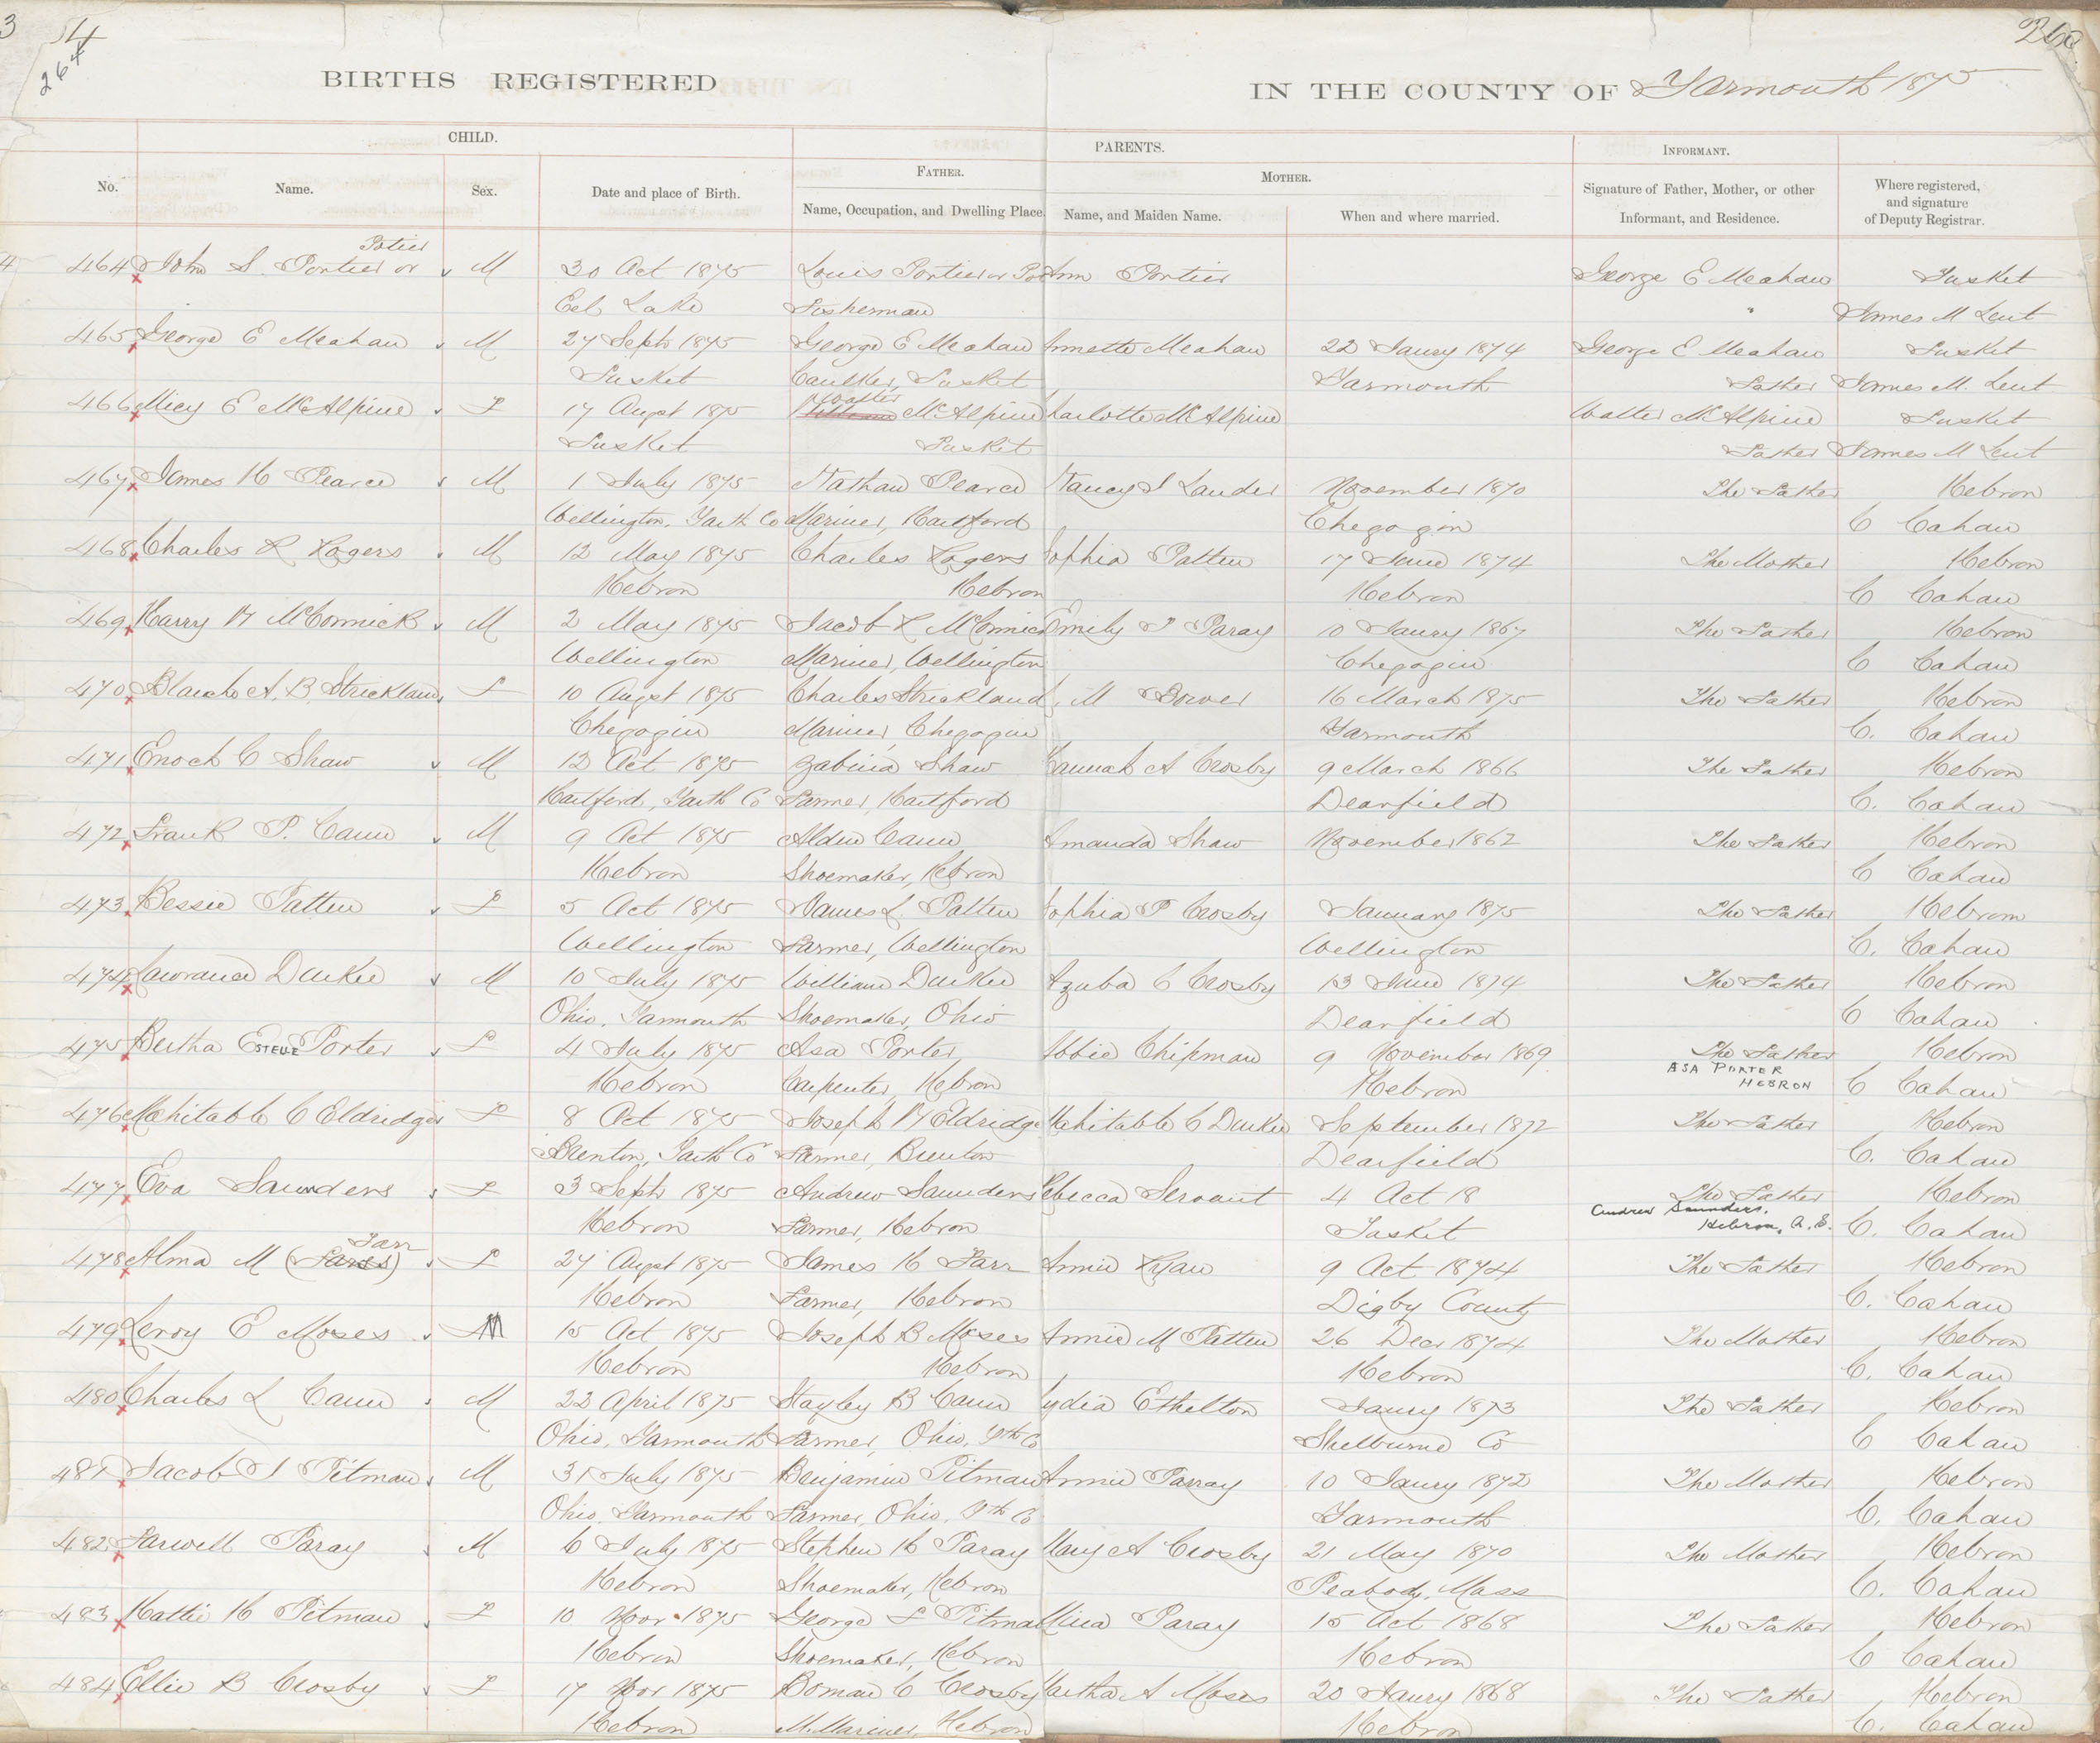 3 54 264
BIRTHS REGISTERED IN THE COUNTY OF Yarmouth 1875
CHILD. PARENTS. INFORMANT.
No. Name. Sex. Date and place of Birth. FATHER. Name, Occupation, and Dwelling Place. MOTHER. Name, and Maiden Name. When and where married. Signature of Father, Mother, or other Informant, and Residence. Where registered, and signature of Deputy Registrar.
Potier
464 John S. Portier or M 30 Oct 1875 Louis Portier or Ann Portier George E Meahan Tusket
Eel Lake Fisherman " James M Lent
465 George E Meahan M 27 Septr 1875 George E Meahan Annette Meahan 22 Jany 1874 George E Meahan Tusket
Tusket Caulker, Tusket Yarmouth Father James M. Lent
466 Micy E McAlpine F 17 Augst 1875 Walter McAlpine Charlotte McAlpine Walter McAlpine Tusket
Tusket Tusket Father James M Lent
467 James H Pearce M 1 July 1875 Nathan Pearce Nancy J Lander November 1870 The Father Hebron
Wellington, Yarth Co Mariner, Hartford Chegogin C Cahan
468 Charles R Rogers M 12 May 1875 Charles Rogers Sophia Patten 17 June 1874 The Mother Hebron
Hebron Hebron Hebron C Cahan
469 Harry H McCormick M 2 May 1875 Jacob R McCormick Emily J Paray 10 Jany 1867 The Father Hebron
Wellington Mariner, Wellington Chegogin C Cahan
470 Blanche A. B. Strickland F 10 Augst 1875 Charles Strickland M Dower 16 March 1875 The Father Hebron
Chegogin Mariner, Chegogin Yarmouth C. Cahan
471 Enoch C Shaw M 12 Oct 1875 Zabina Shaw Hannah A Crosby 9 March 1866 The Father Hebron
Hartford, Yarth Co Farmer, Hartford Dearfield C. Cahan
472 Frank P. Cann M 9 Oct 1875 Alden Cann Amanda Shaw November 1862 The Father Hebron
Hebron Shoemaker, Hebron C Cahan
473 Bessie Patten F 5 Oct 1875 James L. Patten Sophia P Crosby January 1875 The Father Hebron
Wellington Farmer, Wellington Wellington C. Cahan
474 Lawrance Durkee M 10 July 1875 William Durkee Azuba C Crosby 13 June 1874 The Father Hebron
Ohio, Yarmouth Shoemaker, Ohio Dearfield C Cahan
475 Bertha ESTELLE Porter F 4 July 1875 Asa Porter, Abbie Chipman 9 November 1869 The Father Hebron
ASA PORTER
HEBRON
Hebron Carpenter, Hebron Hebron C Cahan
476 Mehitable C Eldridge F 8 Oct 1875 Joseph H Eldridge Mehitable C Durkee September 1872 The Father Hebron
Brenton, Yarth Co Farmer, Brenton Dearfield C. Cahan
477 Eva Saunders F 3 Septr 1875 Andrew Saunders Rebecca Servant 4 Oct 18 The Father Hebron
Andrew Saunders,
Hebron
Hebron Farmer, Hebron Tusket C. Cahan
Farr
478 Alma M F 27 Augst 1875 James H Farr Annie Ryan 9 Oct 1874 The Father Hebron
Hebron Farmer, Hebron Digby County C. Cahan
479 Leroy E Moses M 15 Oct 1875 Joseph B Moses Annie M Patten 26 Decr 1874 The Mother Hebron
Hebron Hebron Hebron C. Cahan
480 Charles L Cann M 22 April 1875 Stayley B Cann Lydia Ethelton Jany 1873 The Father Hebron
Ohio, Yarmouth Farmer, Ohio, Yth Co Shelburne Co C Cahan
481 Jacob S Pitman M 31 July 1875 Benjamin Pitman Annie Parray 10 Jany 1872 The Mother Hebron
Ohio, Yarmouth Farmer, Ohio, Yth Co Yarmouth C. Cahan
482 Farwell Paray M 6 July 1875 Stephen H Paray Mary A Crosby 21 May 1870 The Mother Hebron
Hebron Shoemaker, Hebron Peabody, Mass C. Cahan
483 Hattie H Pitman F 10 Nov 1875 George F Pitman Mina Paray 15 Oct 1868 The Father Hebron
Hebron Shoemaker, Hebron Hebron C Cahan
484 Ellie B Crosby F 17 Nov 1875 Boman C Crosby Martha A Moses 20 Jany 1868 The Father Hebron
Hebron M. Mariner, Hebron Hebron C. Cahan